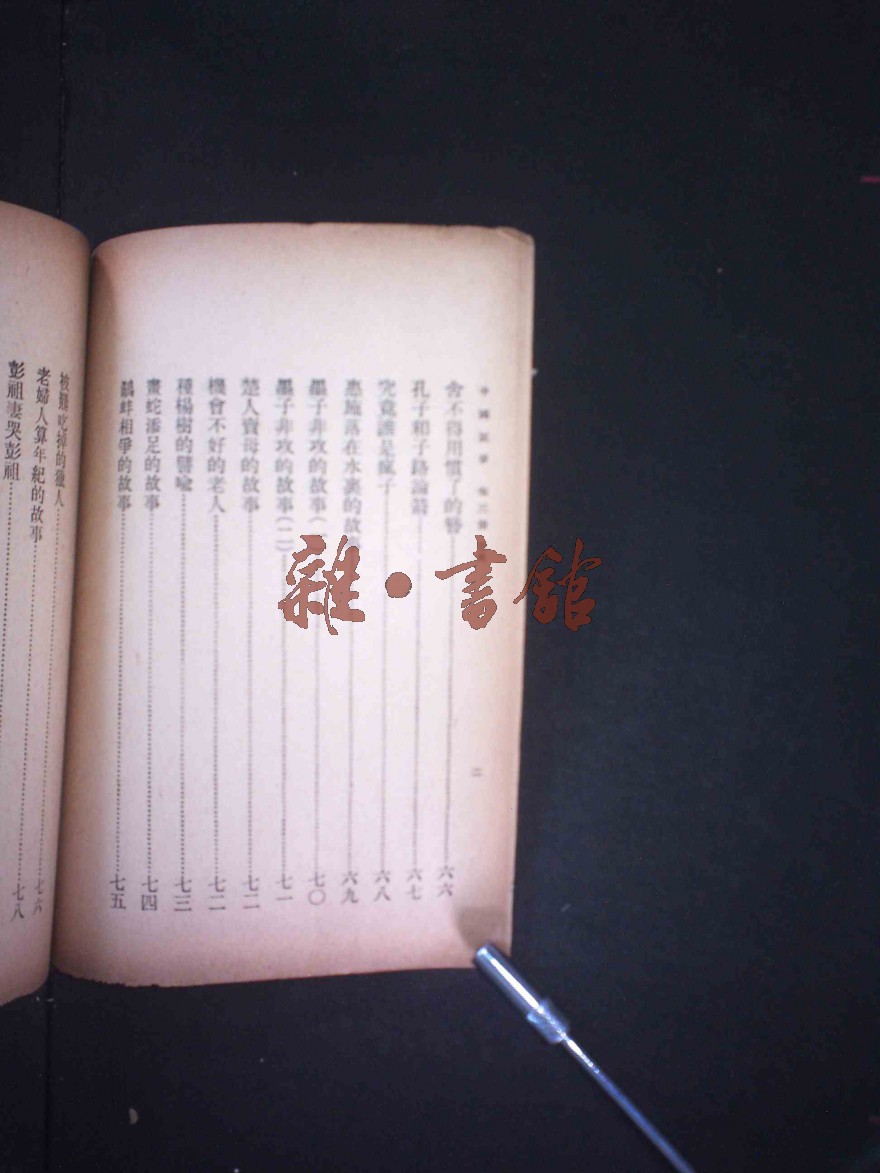 中國寓言 第三冊
二
舍不得用慣了的簪⋯⋯六六
孔子和子路論箭⋯⋯六七
究竟誰是瘋子⋯⋯六八
惠施落在水裏的故⋯⋯六九
墨子非攻的故事(⋯⋯七〇
墨子非攻的故事(二)⋯⋯七一
楚人賣母的故事⋯⋯七二
機會不好的老人⋯⋯七二
種楊樹的譬喩⋯⋯七三
畫蛇添足的故事⋯⋯七四
鷸蚌相爭的故事⋯⋯七五
被 吃掉的獵人⋯⋯七六
老婦人算年紀的故事⋯⋯七八
彭祖凄哭彭祖
雜·書館